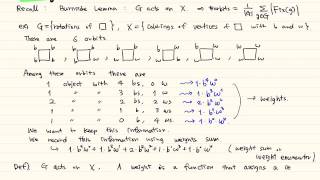 Recall : Burnside Lemma : G acts on X ⇒ #orbits = 1/|G| Σ g∈G |Fix(g)|
ex) G = {rotations of □} , X = {colorings of vertices of □ with b and w}
There are 6 orbits.
b b b b b b b w b w w w
b b b w w w w b w w w w
Among these orbits are
1 object with 4 bs, 0 w → 1·b⁴w⁰
1 " " 3 bs, 1 w → 1·b³w¹
2 " " 2 bs, 2 ws → 2·b²w²
1 " " 1 b, 3 ws → 1·b¹w³
1 " " 0 b, 4 ws → 1·b⁰w⁴
→ weights.
We want to keep this information.
We record this information using weights sum
1·b⁴w⁰ + 1·b³w¹ + 2·b²w² + 1·b¹w³ + 1·b⁰w⁴ (weight sum or weight enumerator)
Def) G acts on X. A weight is a function that assigns a